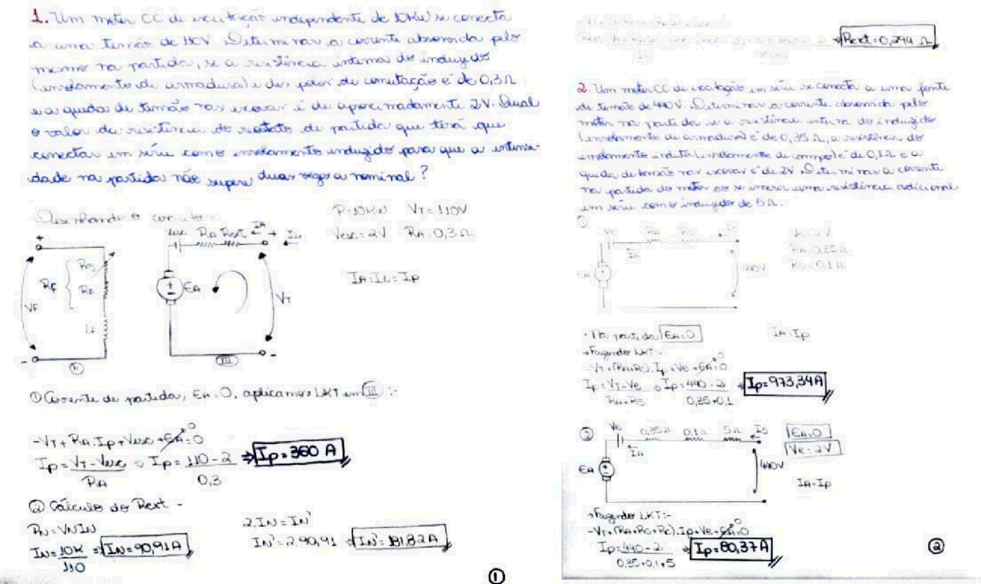 1. Um motor CC de excitação independente de 10kW se conecta
a uma tensão de 110V. Determinar a corrente absorvida pelo
mesmo na partida, se a resistência interna do induzido
(enrolamento de armadura) e dos polos de comutação é de 0,3Ω
e a queda de tensão nas escovas é de aproximadamente 2V. Qual
o valor da resistência do reostato de partida que terá que
conectar em série com o enrolamento induzido para que a intensi-
dade na partida não supere duas vezes a nominal?
Desenhando o circuito
P=10KW VT=110V
Vesc=2V RA=0,3Ω
IA=IL=IP
+
RF
VF
LF
-
II
Vesc RA Rext IA + IL
EA
VT
-
III
① Corrente de partida, EA=0, aplicamos LKT em III :-
-VT+RA.Ip+Vesc+EA=0
0
Ip=VT-Vesc ⇒ Ip=110-2 ⇒ Ip=360 A
RA 0,3
② Cálculo do Rext -
PN=VNIN
IN=10K ⇒ IN=90,91A
110
2.IN=IN'
IN'=2.90,91 IN'=181,82A
①
Rext=0,294 Ω
2. Um motor CC de excitação em série se conecta a uma fonte
de tensão de 440V. Determinar a corrente absorvida pelo
motor na partida se a resistência interna do induzido
(enrolamento de armadura) é de 0,35Ω, a resistência do
enrolamento indutor (enrolamento de campo) é de 0,1Ω e a
queda de tensão nas escovas é de 2V. Determinar a corrente
na partida do motor ao se inserir uma resistência adicional
em série com o induzido de 5Ω.
①
Ve RA
IA
EA
440V
Ve=2V
RA=0,35Ω
=0,1Ω
• Na partida EA=0 IA=Ip
→ Fazendo LKT:-
Ip=VT-Ve Ip=440-2 ⇒ Ip=973,34A
0,35+0,1
②
Ve 0,35Ω 0,1Ω 5Ω
IA
EA
440V
EA=0
Ve=2V
IA=Ip
→ Fazendo LKT:-
Ip=440-2 ⇒ Ip=80,37A
0,35+0,1+5
②